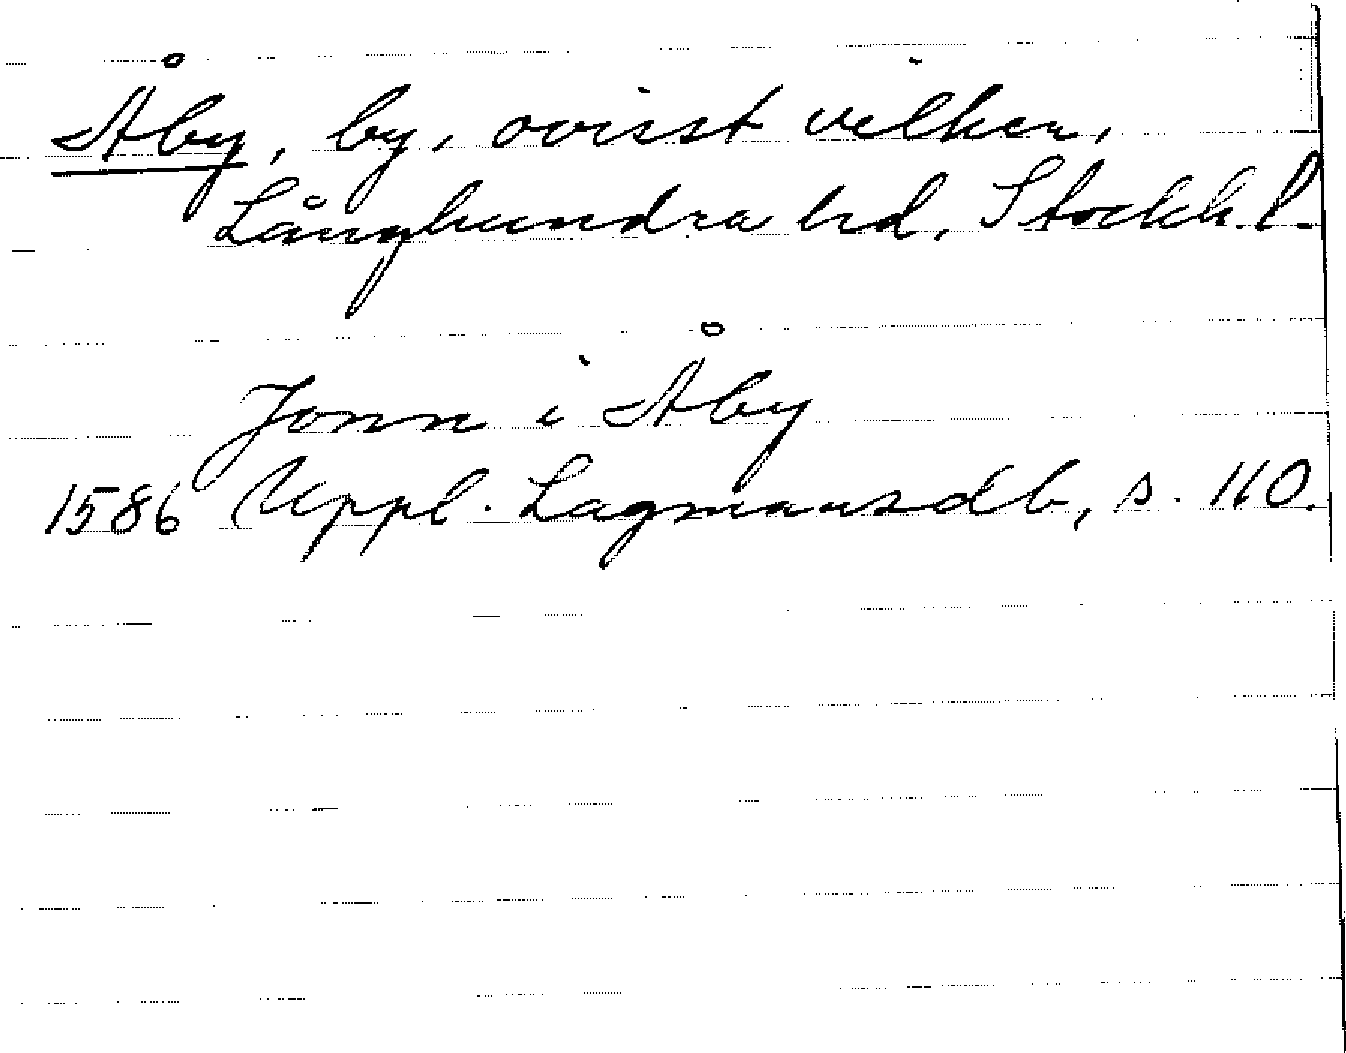 Åby, by, ovisst vilken,
Långhundra hd, Stockh. l.
Jonn i Åby
1586 Uppl. Lagmansdb, s. 110.